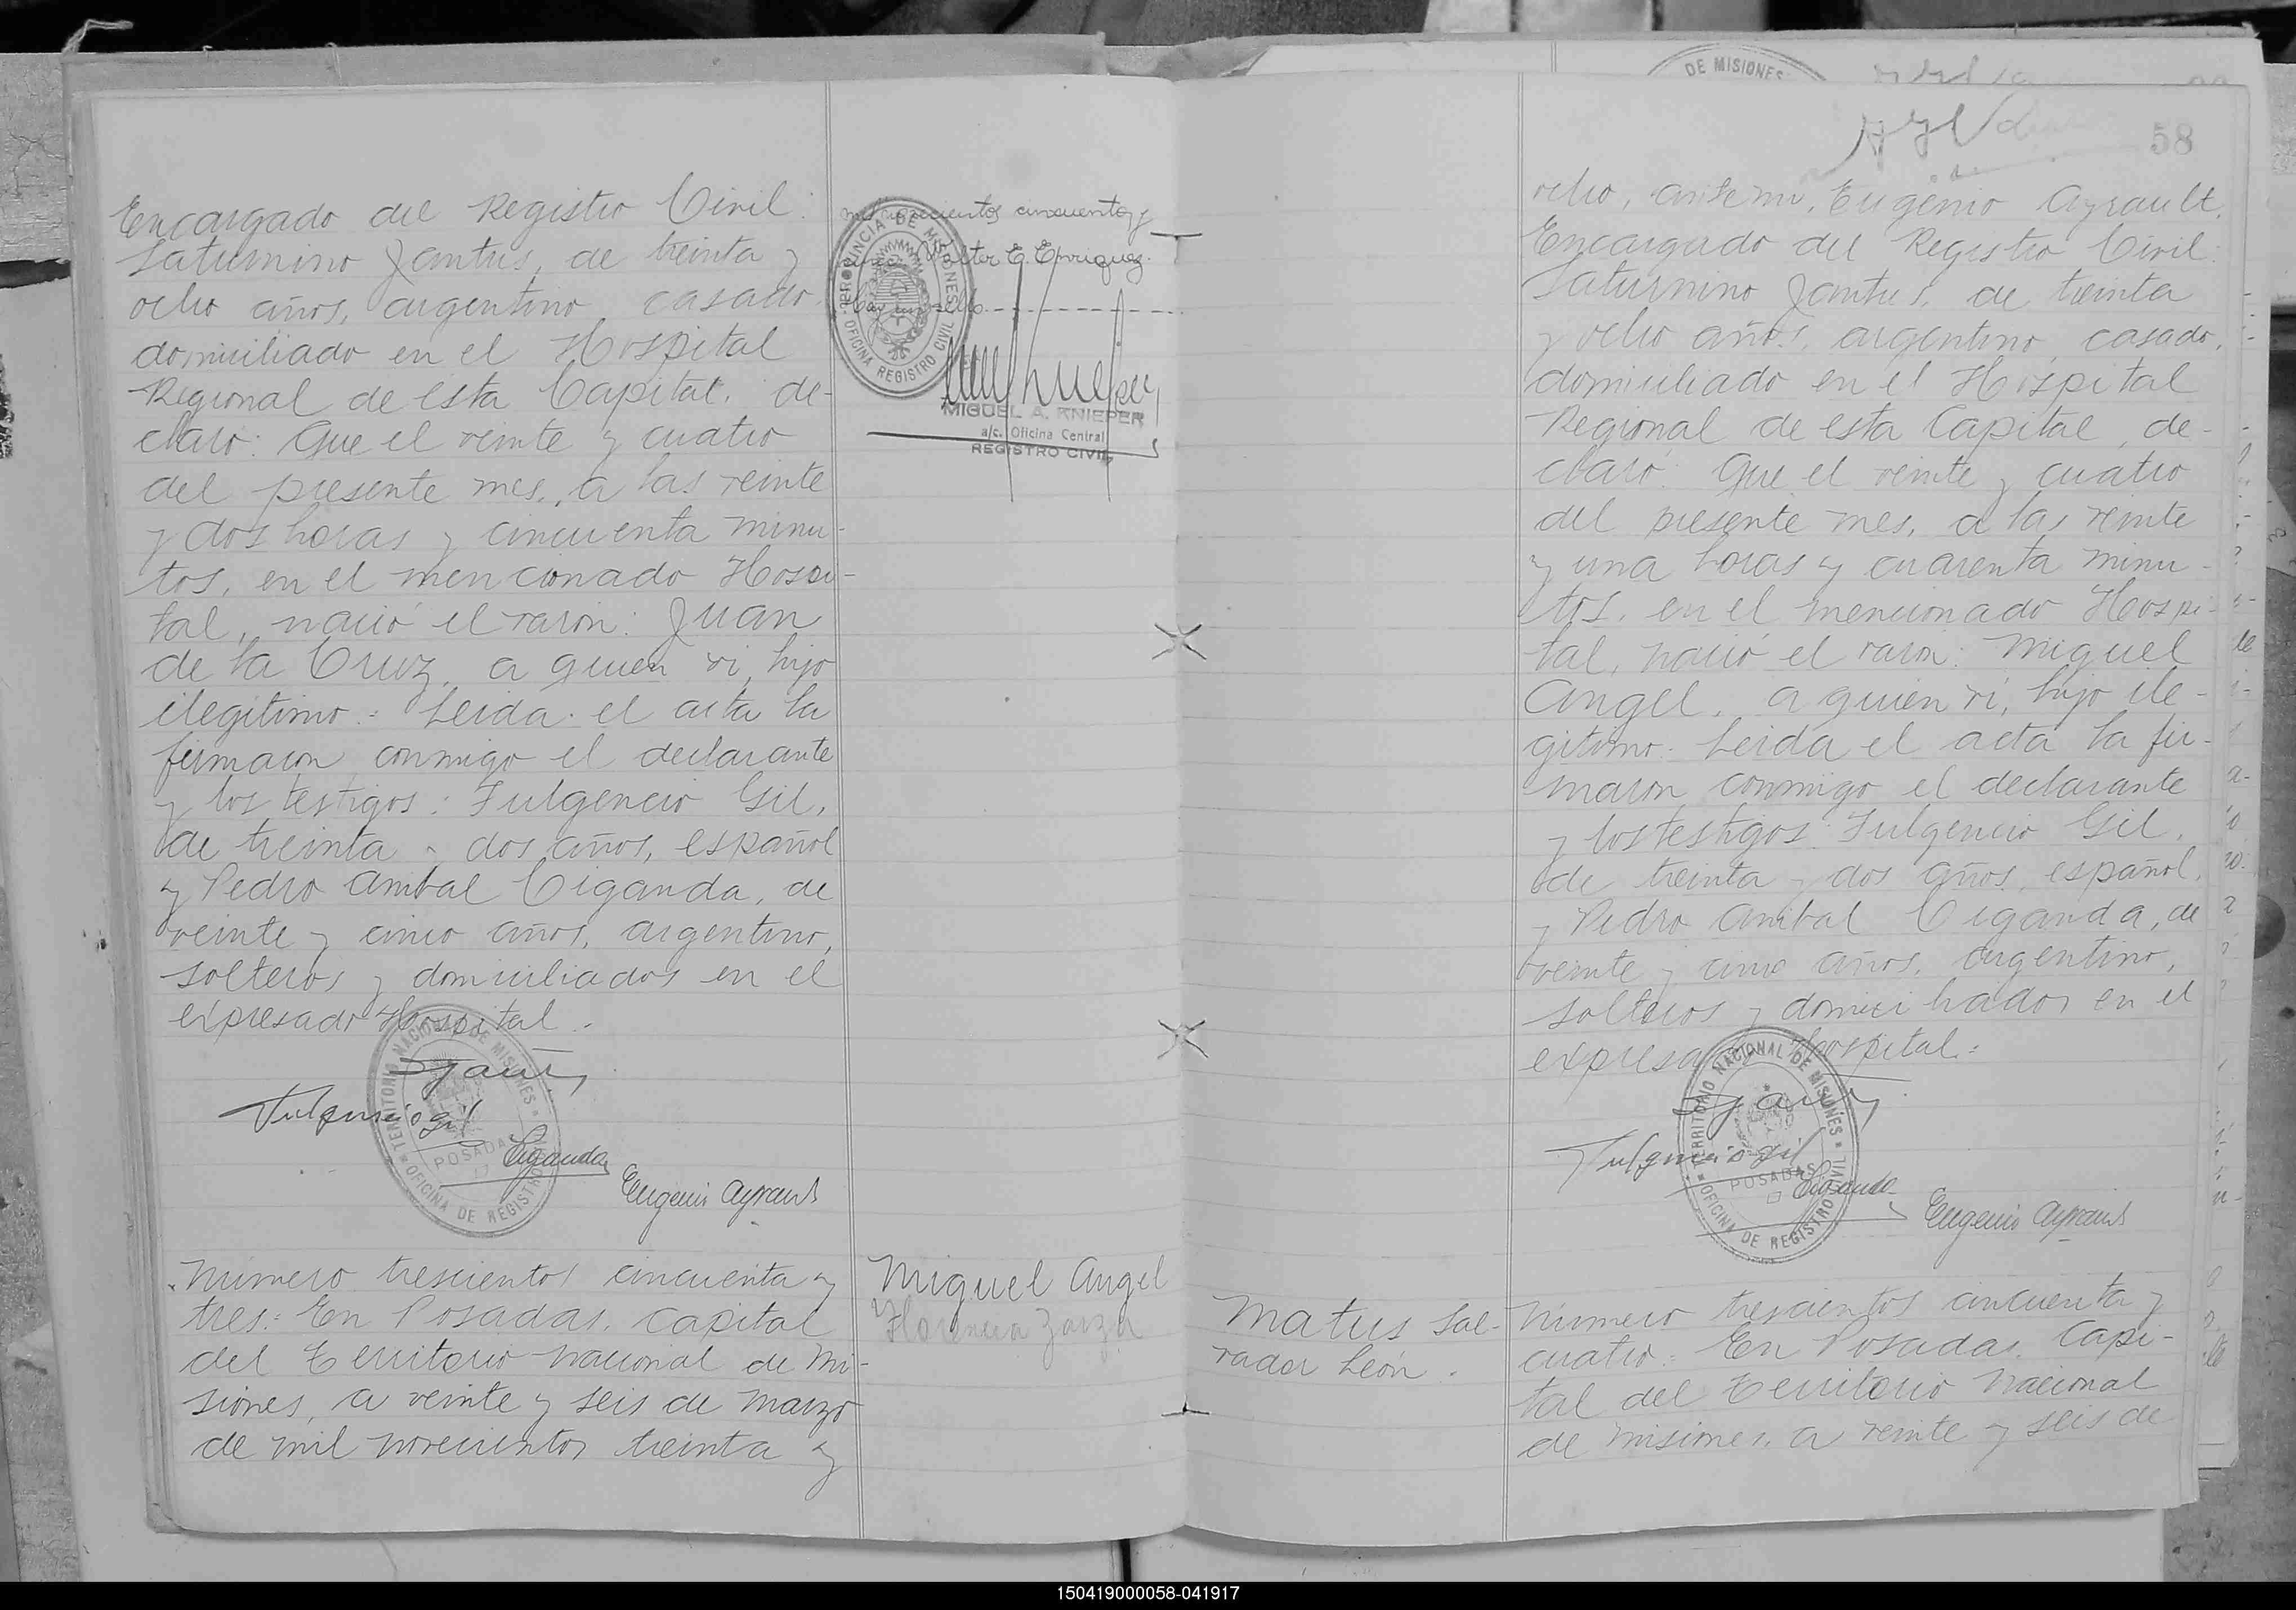 Encargado del Registro Civil:
Saturnino Jantus, de treinta y
ocho años, argentino, casado,
domiciliado en el Hospital
Regional de esta Capital, de-
claró: Que el veinte y cuatro
del presente mes, a las veinte
y dos horas y cincuenta minu-
tos, en el mencionado Hospi-
tal, nació el varón: Juan
de la Cruz, a quien vi, hijo
ilegítimo.= Leida el acta la
firmaron conmigo el declarante
y los testigos: Fulgencio Gil,
de treinta y dos años, español
y Pedro Anibal Ciganda, de
veinte y cinco años, argentino,
solteros y domiciliados en el
expresado Hospital.-
TERRITORIO NACIONAL DE MISIONES
POSADAS
OFICINA DE REGISTRO CIVIL
Fulgencio Gil
Ciganda
Eugenio Ayrault
Número trescientos cincuenta y
tres.= En Posadas, Capital
del Territorio Nacional de Mi-
siones, a veinte y seis de Marzo
de mil novecientos treinta y
mil novecientos cincuenta y
Walter E. Enriquez.
Hay un sello
PROVINCIA DE MISIONES
OFICINA REGISTRO CIVIL
MIGUEL A. KNIEPER
a/c. Oficina Central
REGISTRO CIVIL
Miguel Angel
Florencia
DE MISIONES
58
ocho, ante mi, Eugenio Ayrault,
Encargado del Registro Civil:
Saturnino Jantus, de treinta
y ocho años, argentino, casado,
domiciliado en el Hospital
Regional de esta Capital, de-
claró: Que el veinte y cuatro
del presente mes, a las veinte
y una horas y cuarenta minu-
tos, en el mencionado Hospi-
tal, nació el varón: Miguel
Angel, a quien vi, hijo ile-
gítimo.- Leida el acta la fir-
maron conmigo el declarante
y los testigos: Fulgencio Gil,
de treinta y dos años, español,
y Pedro Anibal Ciganda, de
veinte y cinco años, argentino,
solteros y domiciliados en el
expresado Hospital.=
TERRITORIO NACIONAL DE MISIONES
POSADAS
OFICINA DE REGISTRO CIVIL
Fulgencio Gil
Ciganda
Eugenio Ayrault
Matus Sal-
vador León.
Número trescientos cincuenta y
cuatro.= En Posadas, Capi-
tal del Territorio Nacional
de Misiones, a veinte y seis de
150419000058-041917